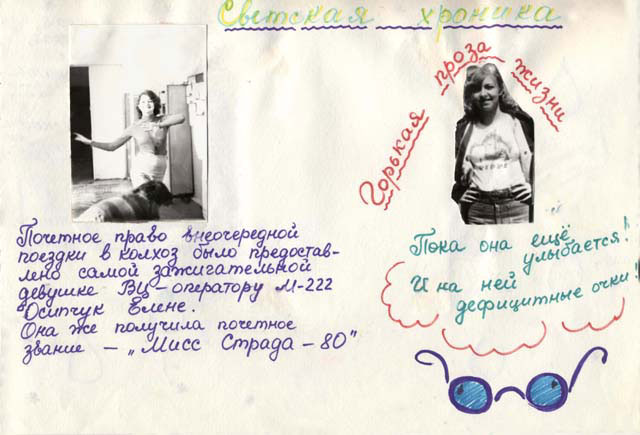 Светская хроника
Горькая проза жизни
Почетное право внеочередной
поездки в колхоз было предостав-
лено самой зажигательной
девушке ВЦ – оператору М-222
Осипчук Елене.
Она же получила почетное
звание – „Мисс Страда – 80"
Пока она ещё
улыбается!
И на ней
дефицитные очки!